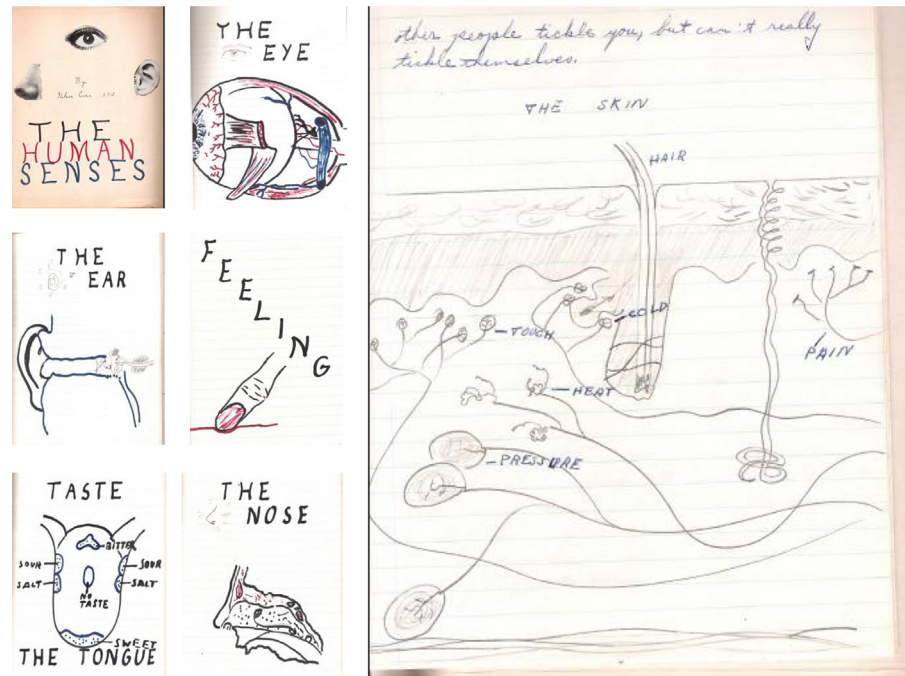 By
THE
HUMAN
SENSES
THE
EYE
THE
EAR
FEELING
TASTE
BITTER
SOUR
SOUR
SALT
SALT
NO
TASTE
SWEET
THE TONGUE
THE
NOSE
other people tickle you, but can't really
tickle themselves.
THE SKIN
HAIR
TOUCH
COLD
PAIN
HEAT
PRESSURE